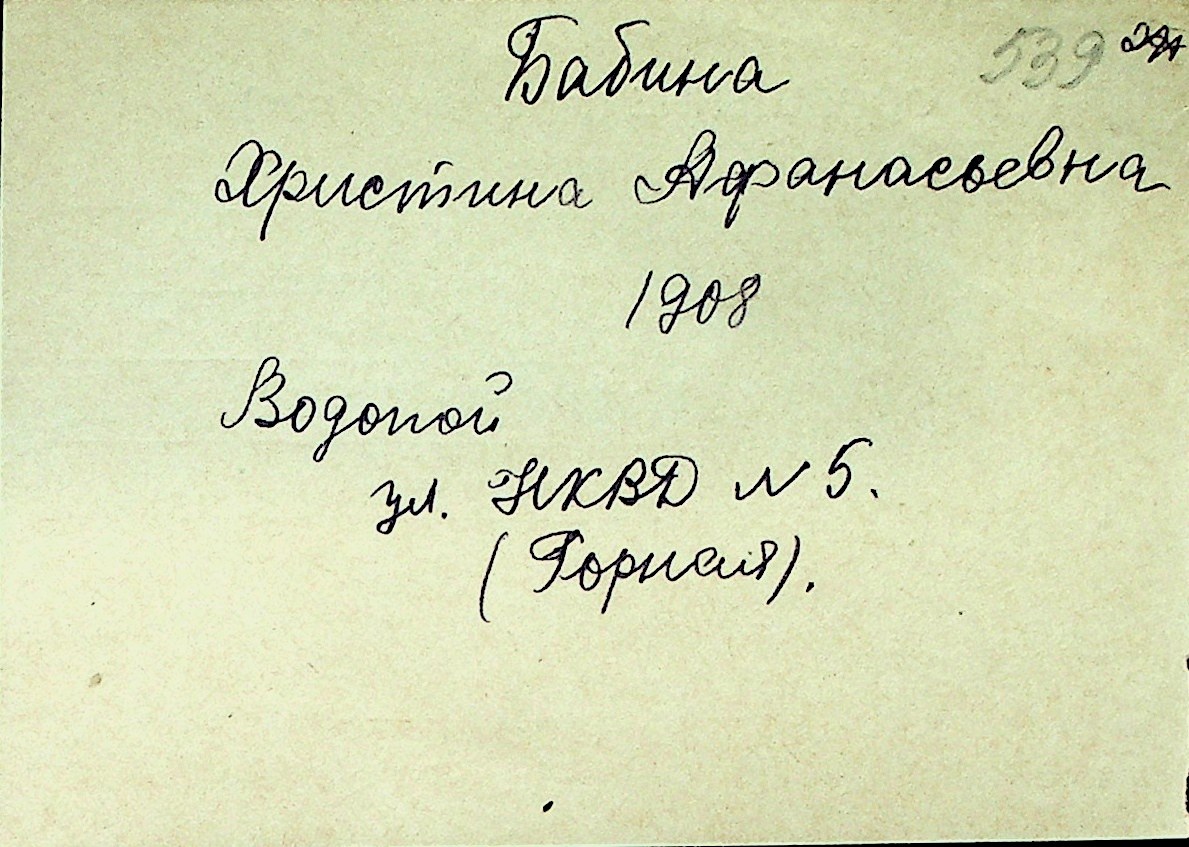 539
Бабина
Христина Афанасьевна
1908
Водопой
ул. НКВД № 5.
(Горная).